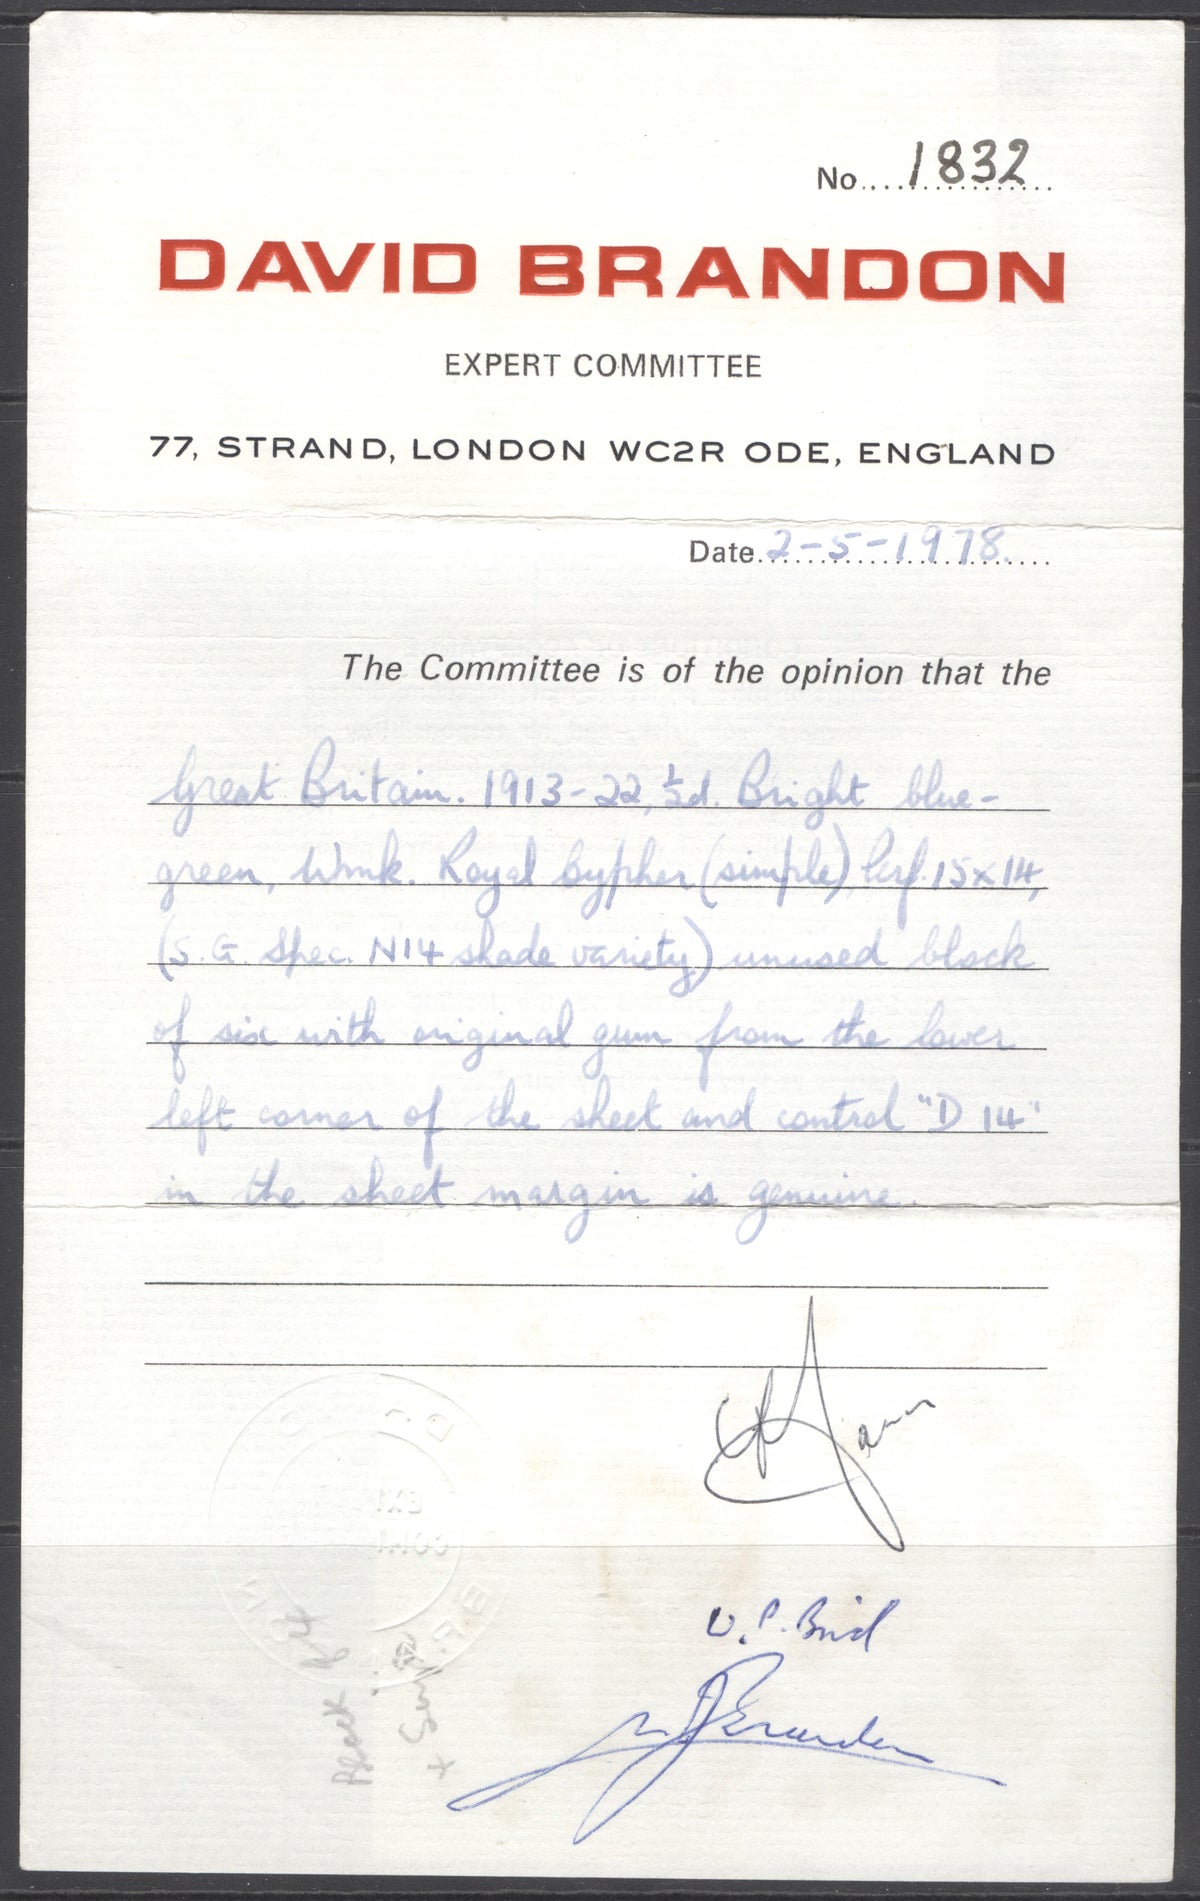 No....1832
DAVID BRANDON
EXPERT COMMITTEE
77, STRAND, LONDON WC2R ODE, ENGLAND
Date 2-5-1978
The Committee is of the opinion that the
Great Britain. 1913-22, ½d. Bright blue-
green, Wmk. Royal Cypher (simple), Perf. 15x14,
(S.G. Spec. N14 shade variety) unused block
of six with original gum from the lower
left corner of the sheet and control "D 14"
in the sheet margin is genuine.
W.P. Bird